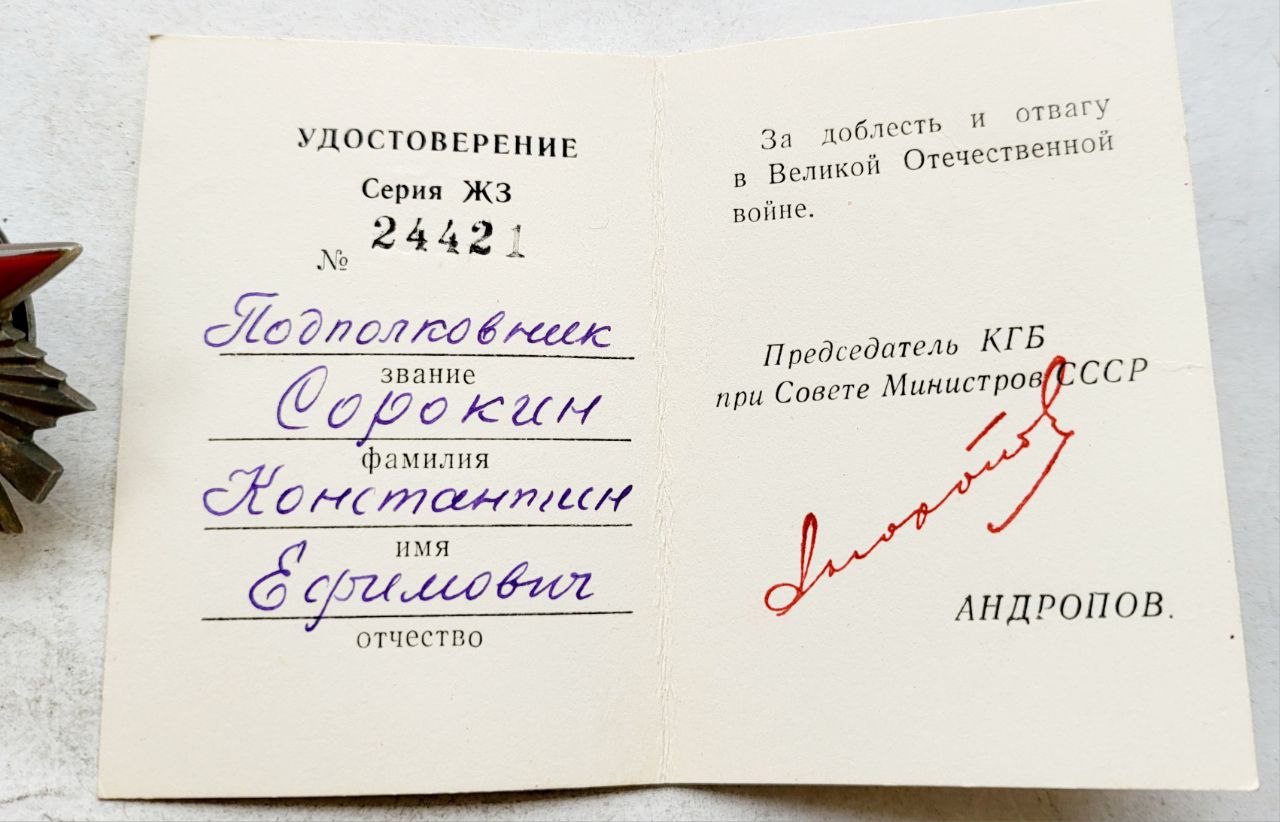 УДОСТОВЕРЕНИЕ
Серия ЖЗ
№ 24421
Подполковник
звание
Сорокин
фамилия
Константин
имя
Ефимович
отчество
За доблесть и отвагу
в Великой Отечественной
войне.
Председатель КГБ
при Совете Министров СССР
Андропов
АНДРОПОВ.